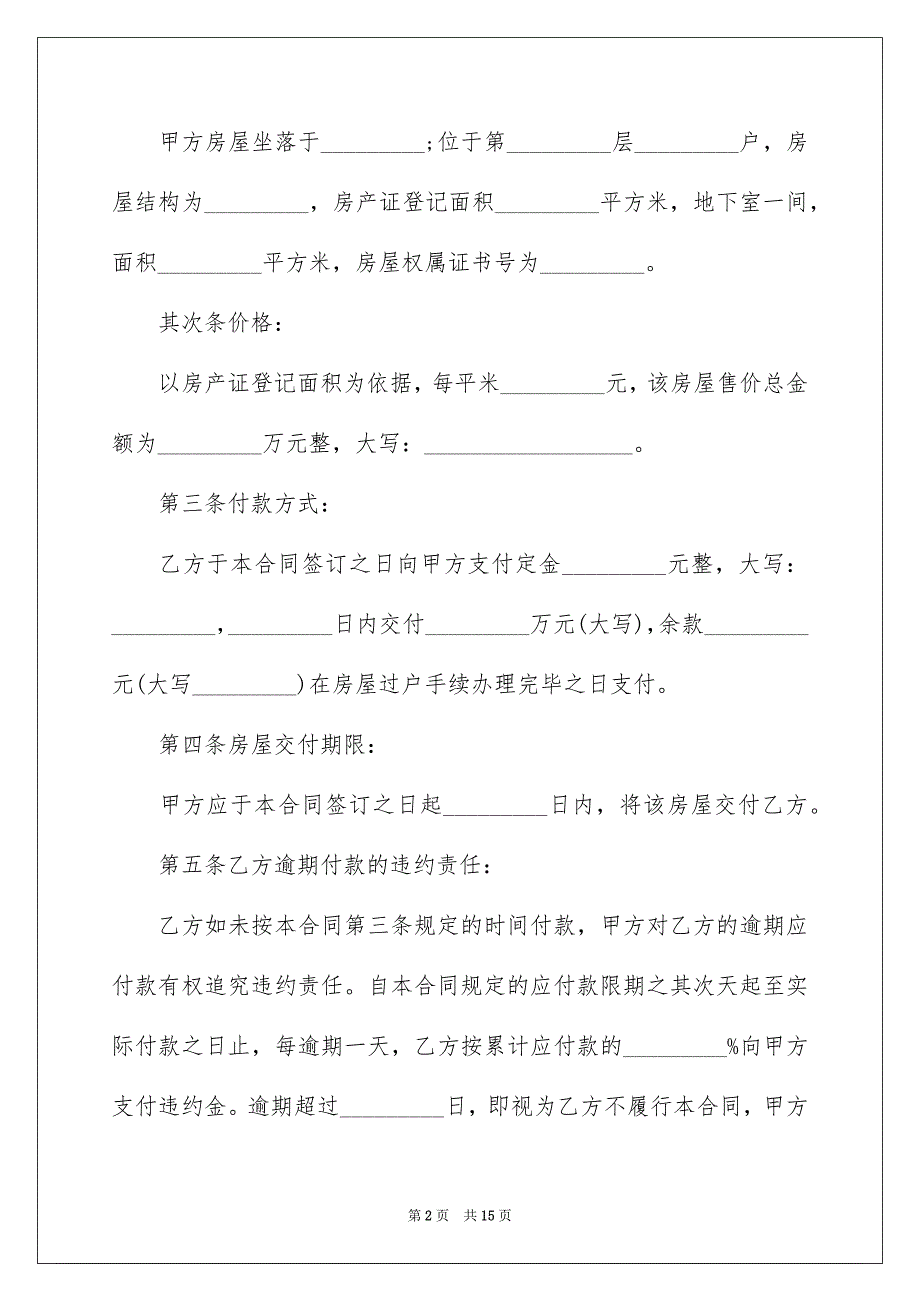 甲方房屋坐落于_________;位于第_________层_________户，房
屋结构为_________，房产证登记面积_________平方米，地下室一间，
面积_________平方米，房屋权属证书号为_________。
其次条价格：
以房产证登记面积为依据，每平米_________元，该房屋售价总金
额为_________万元整，大写：__________________。
第三条付款方式：
乙方于本合同签订之日向甲方支付定金_________元整，大写：
_________，_________日内交付_________万元(大写)，余款_________
元(大写_________)在房屋过户手续办理完毕之日支付。
第四条房屋交付期限：
甲方应于本合同签订之日起_________日内，将该房屋交付乙方。
第五条乙方逾期付款的违约责任：
乙方如未按本合同第三条规定的时间付款，甲方对乙方的逾期应
付款有权追究违约责任。自本合同规定的应付款限期之其次天起至实
际付款之日止，每逾期一天，乙方按累计应付款的_________%向甲方
支付违约金。逾期超过_________日，即视为乙方不履行本合同，甲方
第 2 页 共 15 页